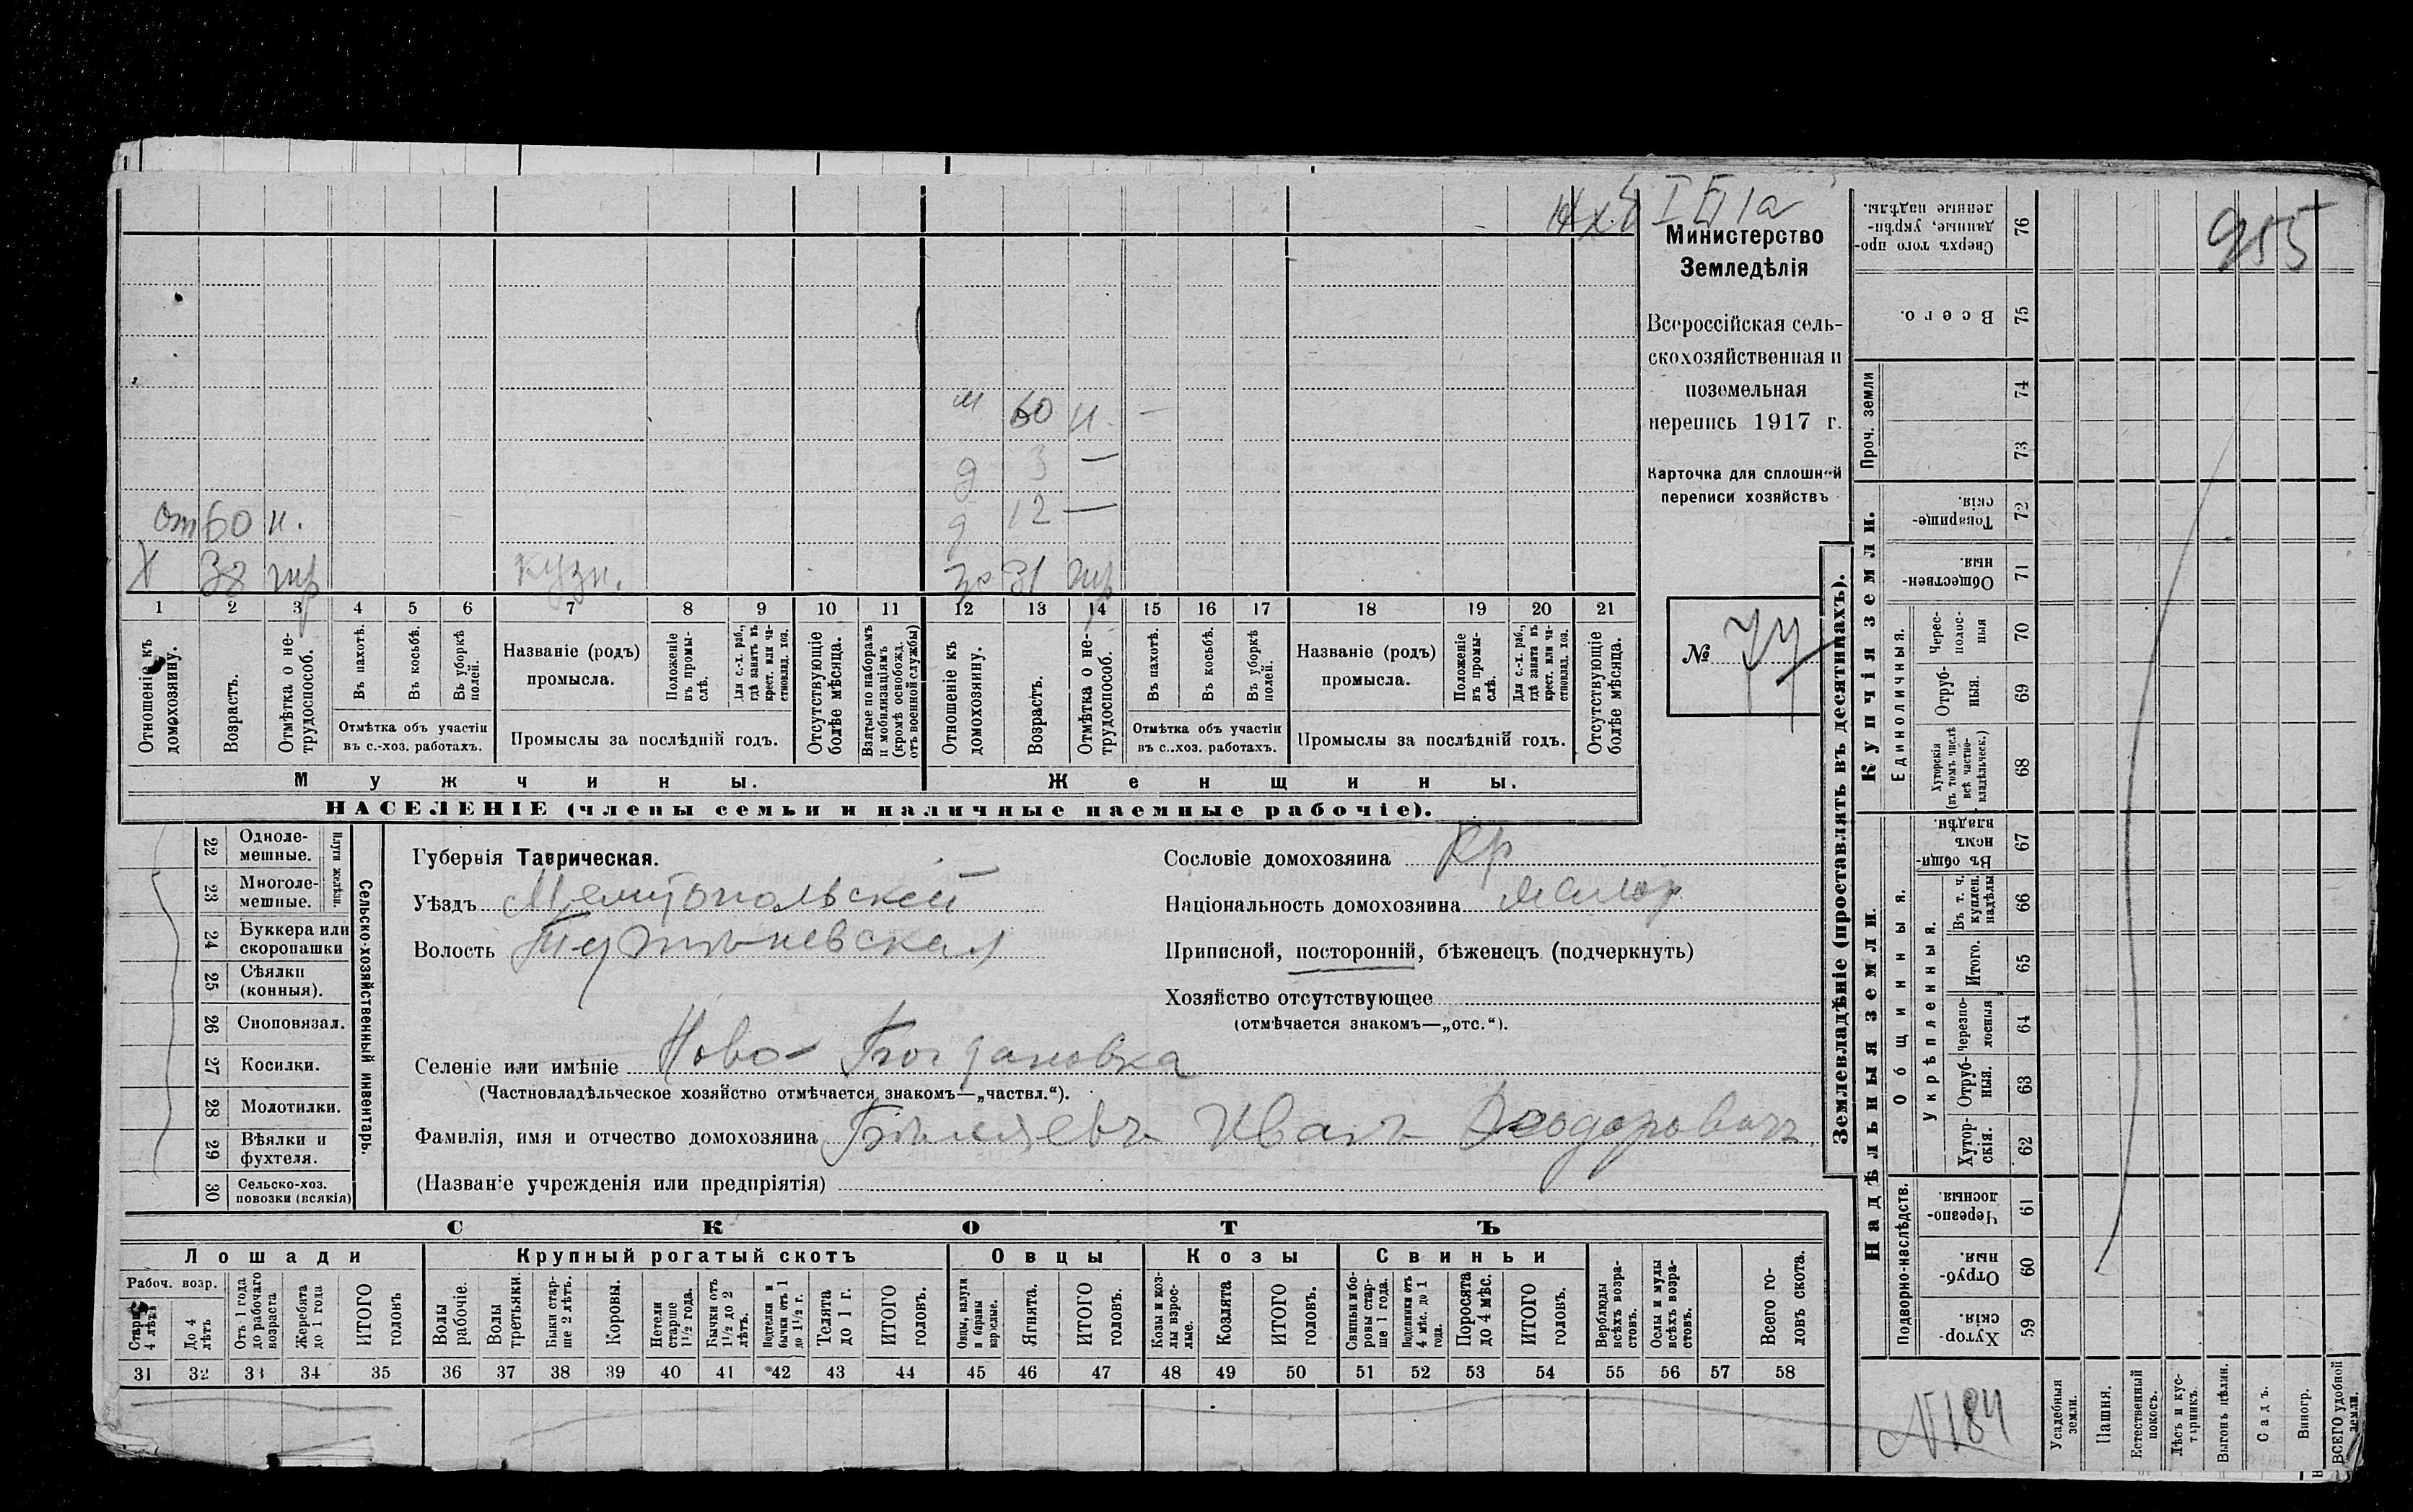 14 х.
I 
1а
955
Министерство
Земледѣлія
Всероссійская сель-
скохозяйственная и
поземельная
перепись 1917 г.
Карточка для сплошной
переписи хозяйствъ
№
м 60 н. —
д 3 —
от 60 н. д 12 —
Х 38 кузн. 31
1 2 3 4 5 6 7 8 9 10 11 12 13 14 15 16 17 18 19 20 21
Отношеніе къ домохозяину.
Возрастъ.
Отмѣтка о не-трудоспособ.
Въ пахотѣ.
Въ косьбѣ.
Въ уборкѣ полей.
Отмѣтка объ участіи
въ с.-хоз. работахъ.
Названіе (родъ)
промысла.
Положеніе въ промы-слѣ.
Для с.-х. раб., гдѣ занятъ въ крест. или ча-ствовлад. хоз.
Промыслы за послѣдній годъ.
Отсутствующіе болѣе мѣсяца.
Взятые по наборамъ и мобилизаціямъ (кромѣ освобожд. отъ военной службы)
Отношеніе къ домохозяину.
Возрастъ.
Отмѣтка о не-трудоспособ.
Въ пахотѣ.
Въ косьбѣ.
Въ уборкѣ полей.
Отмѣтка объ участіи
въ с..хоз. работахъ.
Названіе (родъ)
промысла.
Положеніе въ промы-слѣ.
Для с.-х. раб., гдѣ занята въ крест. или ча-ствовлад. хоз.
Промыслы за послѣдній годъ.
Отсутствующіе болѣе мѣсяца.
Мужчины. Женщины.
НАСЕЛЕНІЕ (члены семьи и наличные наемные рабочіе).
22 Одноле-
мешные.
23 Многоле-
мешные.
Плуги желѣзн.
24 Буккера или
скоропашки
25 Сѣялки
(конныя).
26 Сноповязал.
27 Косилки.
28 Молотилки.
29 Вѣялки и
фухтеля.
30 Сельско-хоз.
повозки (всякія)
Сельско-хозяйственный инвентарь.
Губернія Таврическая.
Уѣздъ Мелитопольскій
Волость
Селеніе или имѣніе Ново-Богдановка
(Частновладѣльческое хозяйство отмѣчается знакомъ—„частвл.“).
Фамилія, имя и отчество домохозяина Бѣляевъ Иванъ Ѳеодоровичъ
(Названіе учрежденія или предпріятія)
Сословіе домохозяина кр
Національность домохозяина малор
Приписной, посторонній, бѣженецъ (подчеркнуть)
Хозяйство отсутствующее
(отмѣчается знакомъ—„отс.“).
СКОТЪ
Лошади Крупный рогатый скотъ Овцы Козы Свиньи
Рабоч. возр.
Старше 4 лѣтъ
До 4 лѣтъ
Отъ 1 года до рабочаго возраста
Жеребята до 1 года
ИТОГО головъ
Волы рабочіе.
Волы третьяки.
Быки стар-ше 2 лѣтъ.
Коровы.
Нетели старше 1½ года.
Бычки отъ 1½ до 2 лѣтъ.
Подтелки и бычки отъ 1 до 1½ г.
Телята до 1 г.
ИТОГО головъ.
Овцы, валухи и бараны взрослые.
Ягнята.
ИТОГО головъ.
Козы и коз-лы взрос-лые.
Козлята
ИТОГО головъ.
Свиньи и бо-ровы стар-ше 1 года.
Подсвинки отъ 4 мѣс. до 1 года.
Поросята до 4 мѣс.
ИТОГО головъ.
Верблюды всѣхъ возра-стовъ.
Ослы и мулы всѣхъ возра-стовъ.
Всего го-ловъ скота.
31 32 33 34 35 36 37 38 39 40 41 42 43 44 45 46 47 48 49 50 51 52 53 54 55 56 57 58
Землевладѣніе (проставлять въ десятинахъ).
Надѣльныя земли. Купчія земли.
Подворно-наслѣдств.
Общинныя.
Укрѣпленныя.
Единоличныя.
Проч. земли
Сверхъ того про-данные, укрѣп-ленные надѣлы. 76
Всего. 75
74
73
Товарище-скія. 72
Обществен-ныя. 71
Черес-полос-ныя 70
Отруб-ныя. 69
Хуторскія (въ томъ числѣ всѣ частно-владѣльческ.) 68
Въ общин-номъ владѣн. 67
Въ т. ч. куплен. надѣлы 66
Итого. 65
Черезпо-лосныя 64
Отруб-ныя. 63
Хутор-скія. 62
Черезпо-лосныя. 61
Отруб-ныя. 60
Хутор-скія. 59
N184
Усадебныя земли.
Пашня.
Естественный покосъ.
Лѣсъ и кус-тарникъ.
Выгонъ цѣлин.
Садъ.
Виногр.
ВСЕГО удобной земли.